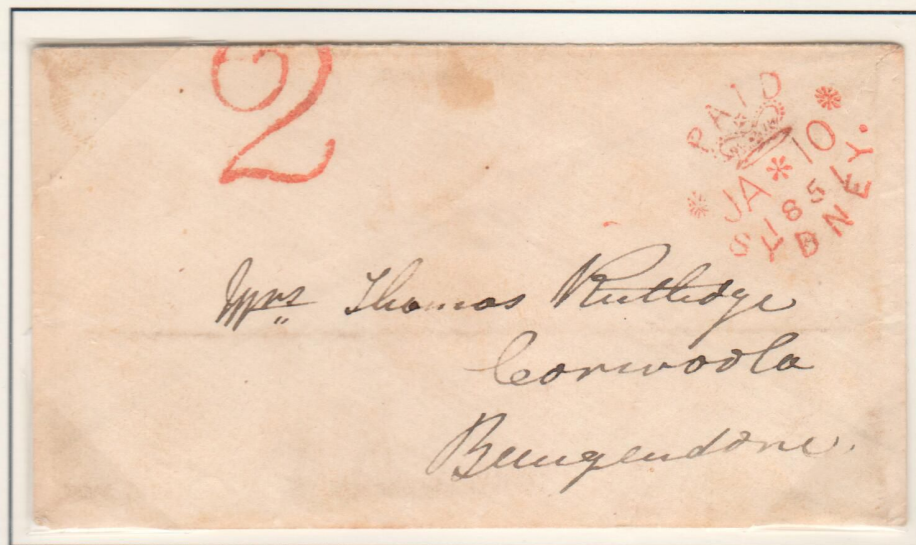 2
PAID
JA * 10
1851
SYDNEY.
Mrs Thomas Rutledge
Corwoola
Bungendore.